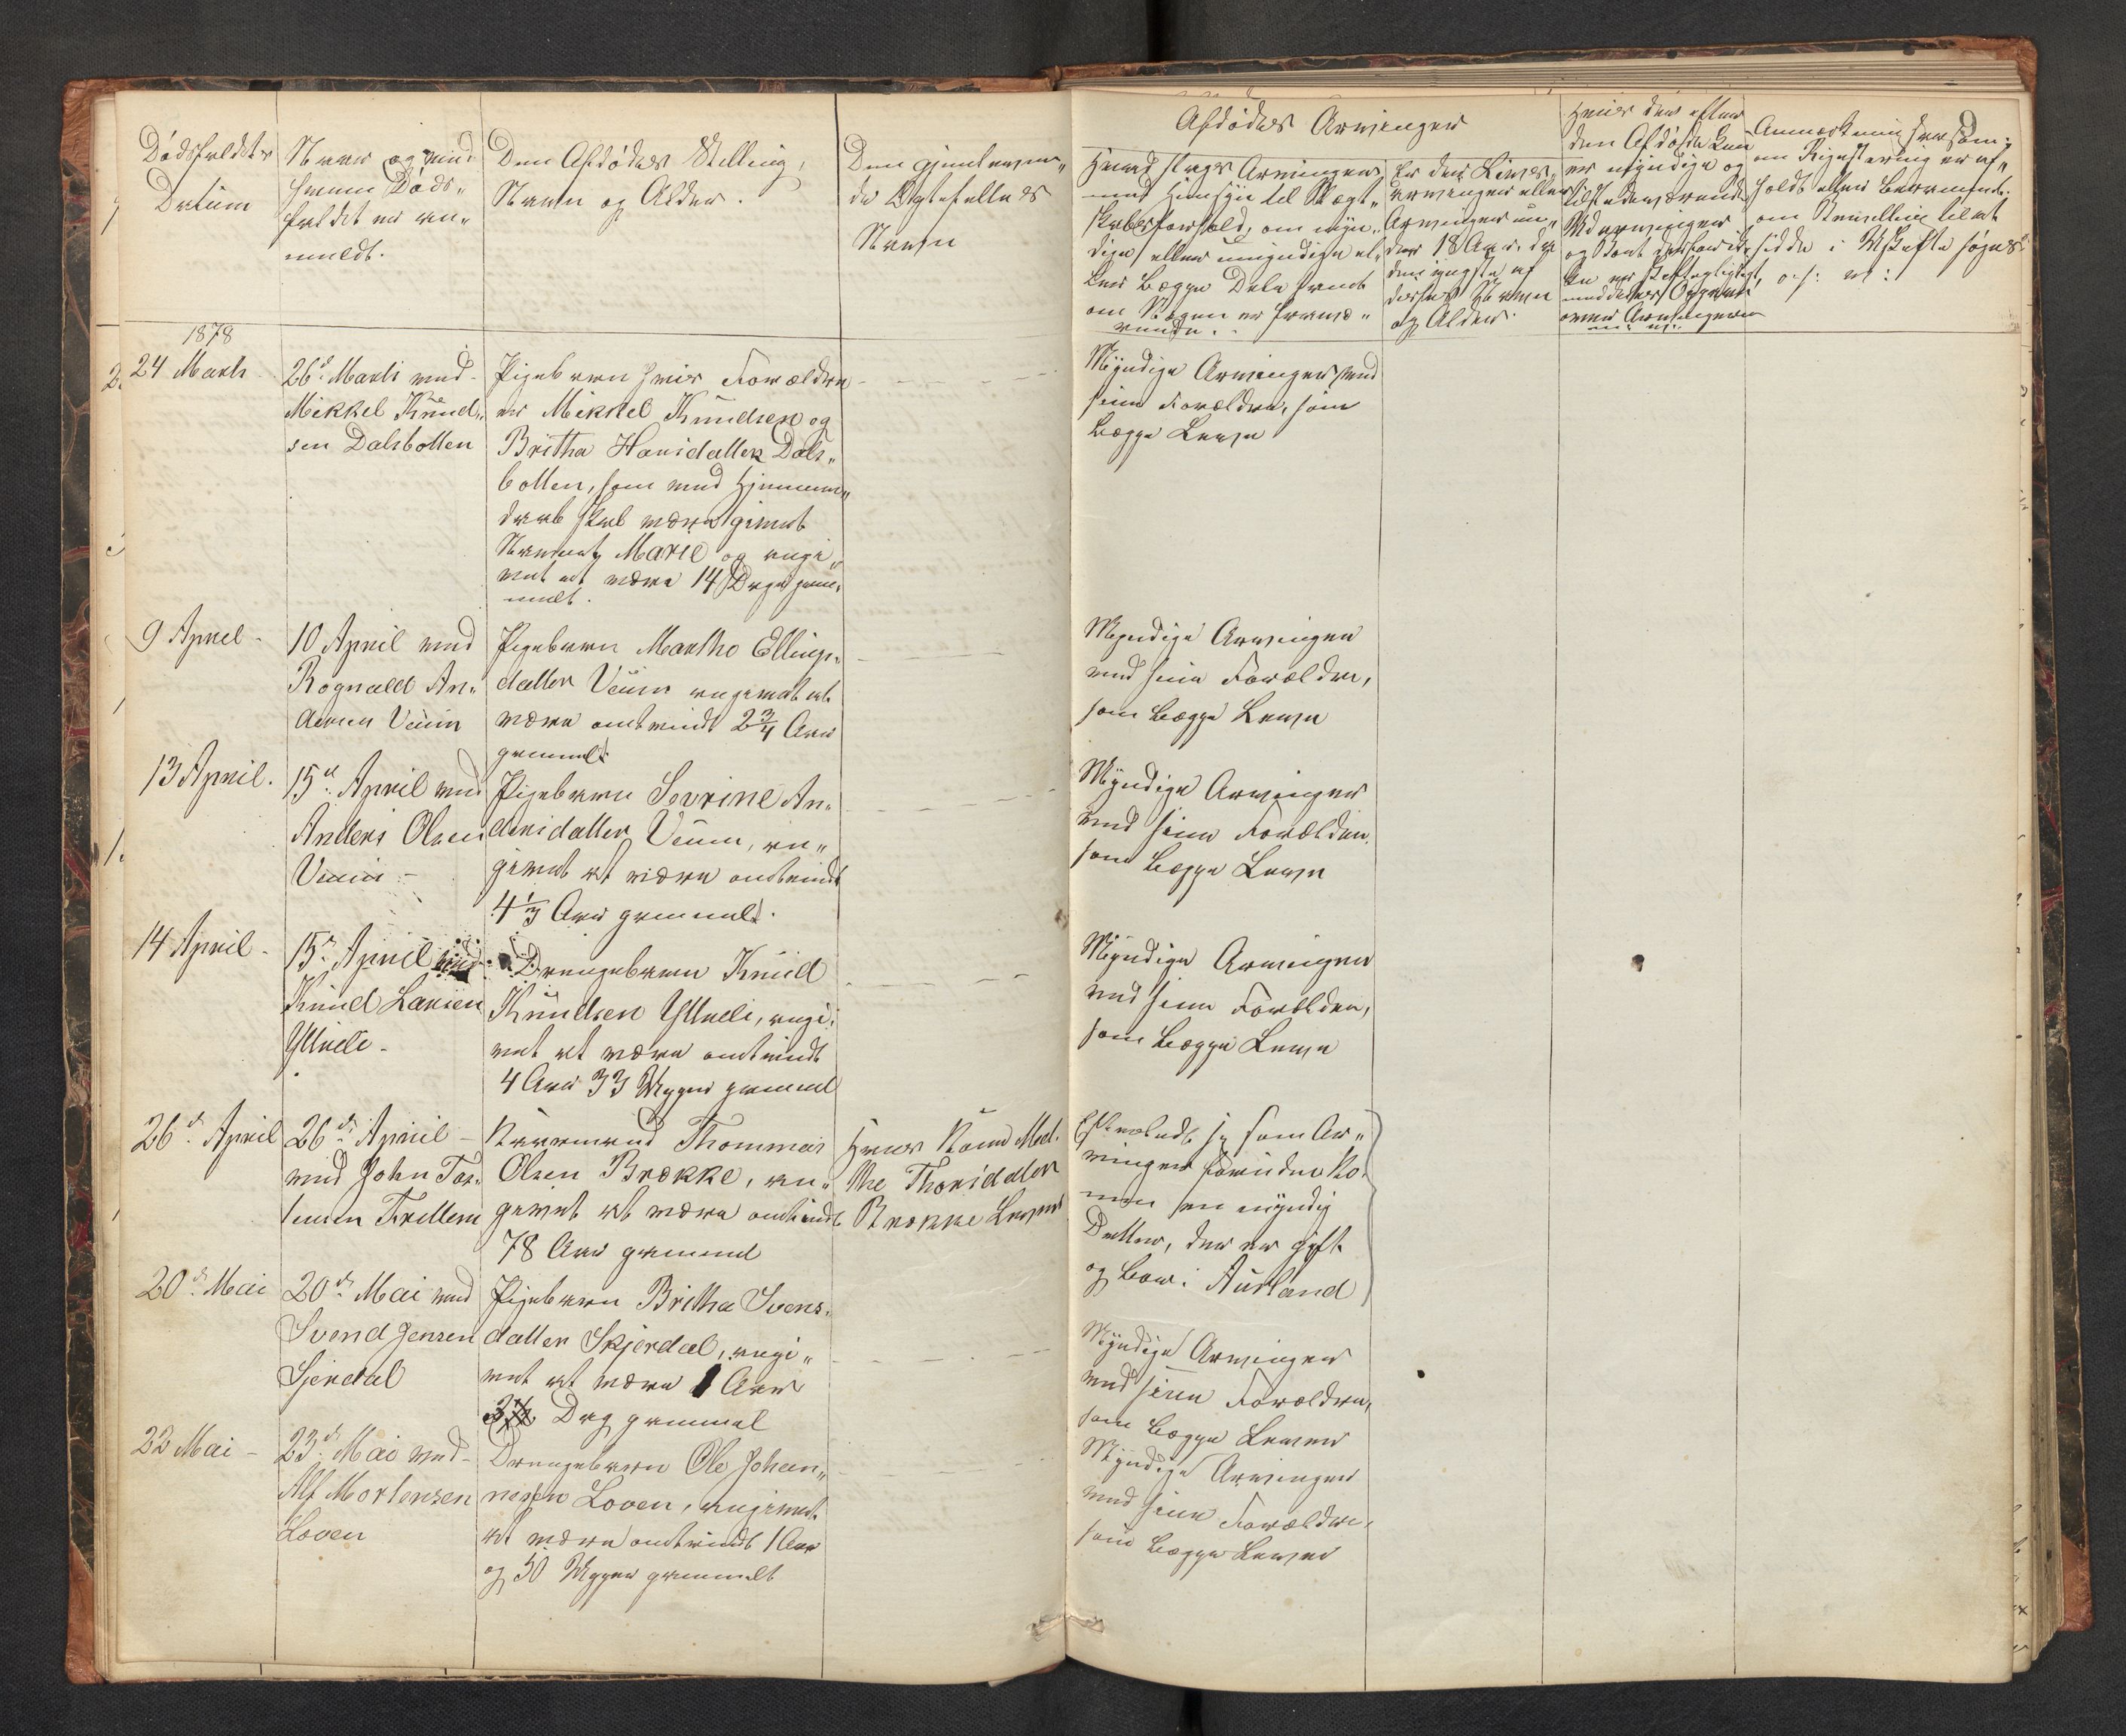 Dødsfaldets
Datum
Naar og med
hvem Døds-
faldet er an-
meldt.
Den Afdødes Stilling,
Navn og Alder.
Den gjenleven-
de Ægtefælles
Navn
Afdødes Arvinger
Hvad slags Arvinger
med Hensyn til Slægt-
skabsforhold, om myn-
dige eller umyndige el-
ler begge Dele samt
om Nogen er fravæ-
rende.
Er der Livs-
arvinger eller
Arvinger un-
der 18 Aar, da
den yngste af
disses Navn
og Alder.
Hvis der efter
den Afdøde kun
er myndige og
tilstedeværende
Udarvinger
over Arvingerne
Anmærkning saasom:
om Registering er af-
holdt eller berammet.
om Bevilling til at
sidde i Uskifte søges
o. s. v:
1878
24 Marts
26d Marts ved
Mikkel Knud-
sen Dalsbotten
Pigebarn hvis Forældre
er Mikkel Knudsen og
Britha Hansdatter Dals-
botten, som ved Hjemme-
daab skal være givet
Navnet Marie og angi-
vet at være 14 Dage gam-
melt.
Myndige Arvinger ved
sine Forældre, som
begge Lever
9 April
10 April ved
Rognald An-
dersen Veum
Pigebarn Martha Ellings-
datter Veum angivet at
være omtrindt 2 3/4 Aar
gammelt
Myndige Arvinger
ved sine Forældre,
som begge Lever
13 April.
15d April ved
Anders Olsen
Veum
Pigebarn Sevrine An-
dersdatter Veum, an-
givet at være omtrindt
4 1/3 Aar gammelt.
Myndige Arvinger
ved sine Forældre,
som begge Lever
14 April
15d April ved
Knud Larsen
Ytreli
Drengebarn Knud
Knudsen Ytreli, angi-
vet at være omtrindt
4 Aar 33 Uger gammel
Myndige Arvinger
ved sine Forældre,
som begge Lever
26d April
26d April
ved John Tor-
Fretlem
Kaarmand Thommas
Olsen Brække, an-
givet at være omtrindt
78 Aar gammel
Hans Kone Mar-
the Thorsdatter
Brække Lever
Efterladt sig som Ar-
vinger foruden Ko-
nen en myndig
Datter, der er gift
og bor i Aurland
20d Mai
20d Mai ved
Svend Jensen
Sjerdal
Pigebarn Britha Svens-
datter Skjerdal, angi-
vet at være 1 Aar
Dag gammel
Myndige Arvinger
ved sine Forældre,
som begge Lever
22 Mai
23d Mai ved
Alf Mortensen
Loven
Drengebarn Ole Johan-
nesen Loven, angivet
at være omtrindt 1 Aar
og 50 Uger gammelt
Myndige Arvinger
ved sine Forældre,
som begge Lever